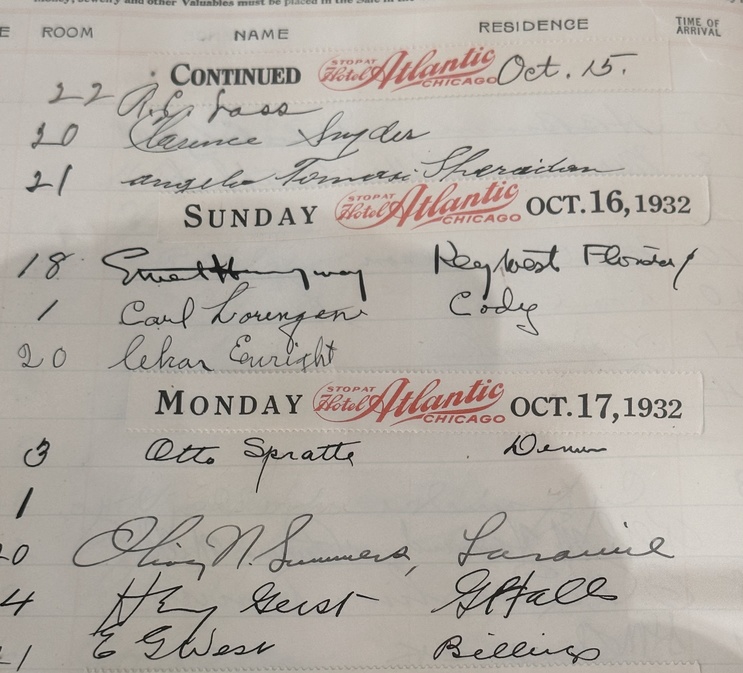 and other Valuables must be placed in the Safe in the
ROOM NAME RESIDENCE TIME OF ARRIVAL
CONTINUED STOP AT Hotel Atlantic CHICAGO Oct. 15.
22
20 Clarence Snyder
21 Angelo Tomasi Sheridan
SUNDAY STOP AT Hotel Atlantic CHICAGO OCT. 16, 1932
18 Ernest Hemingway Key West Florida
1 Carl Lorenzen Cody
20 Enright
MONDAY STOP AT Hotel Atlantic CHICAGO OCT. 17, 1932
3 Otto Spratte Denver
1
20 N. Summers, Laramie
4 Geist Gt Falls
21 E G West Billings